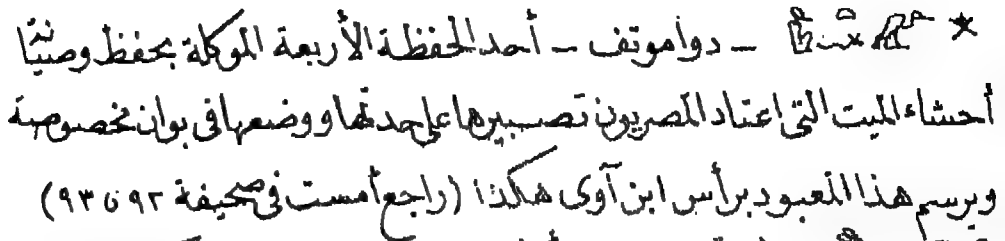 دواموتف - أحد الحفظة الأربعة الموكلة بحفظ وصيانة
أحشاء الميت التى اعتاد المصريون تصبيرها على حدتها ووضعها فى بوان مخصوصة
ويرسم هذا المعبود برأس ابن آوى هكذا (راجع أمست فى صحيفة ٩٢ و ٩٣)